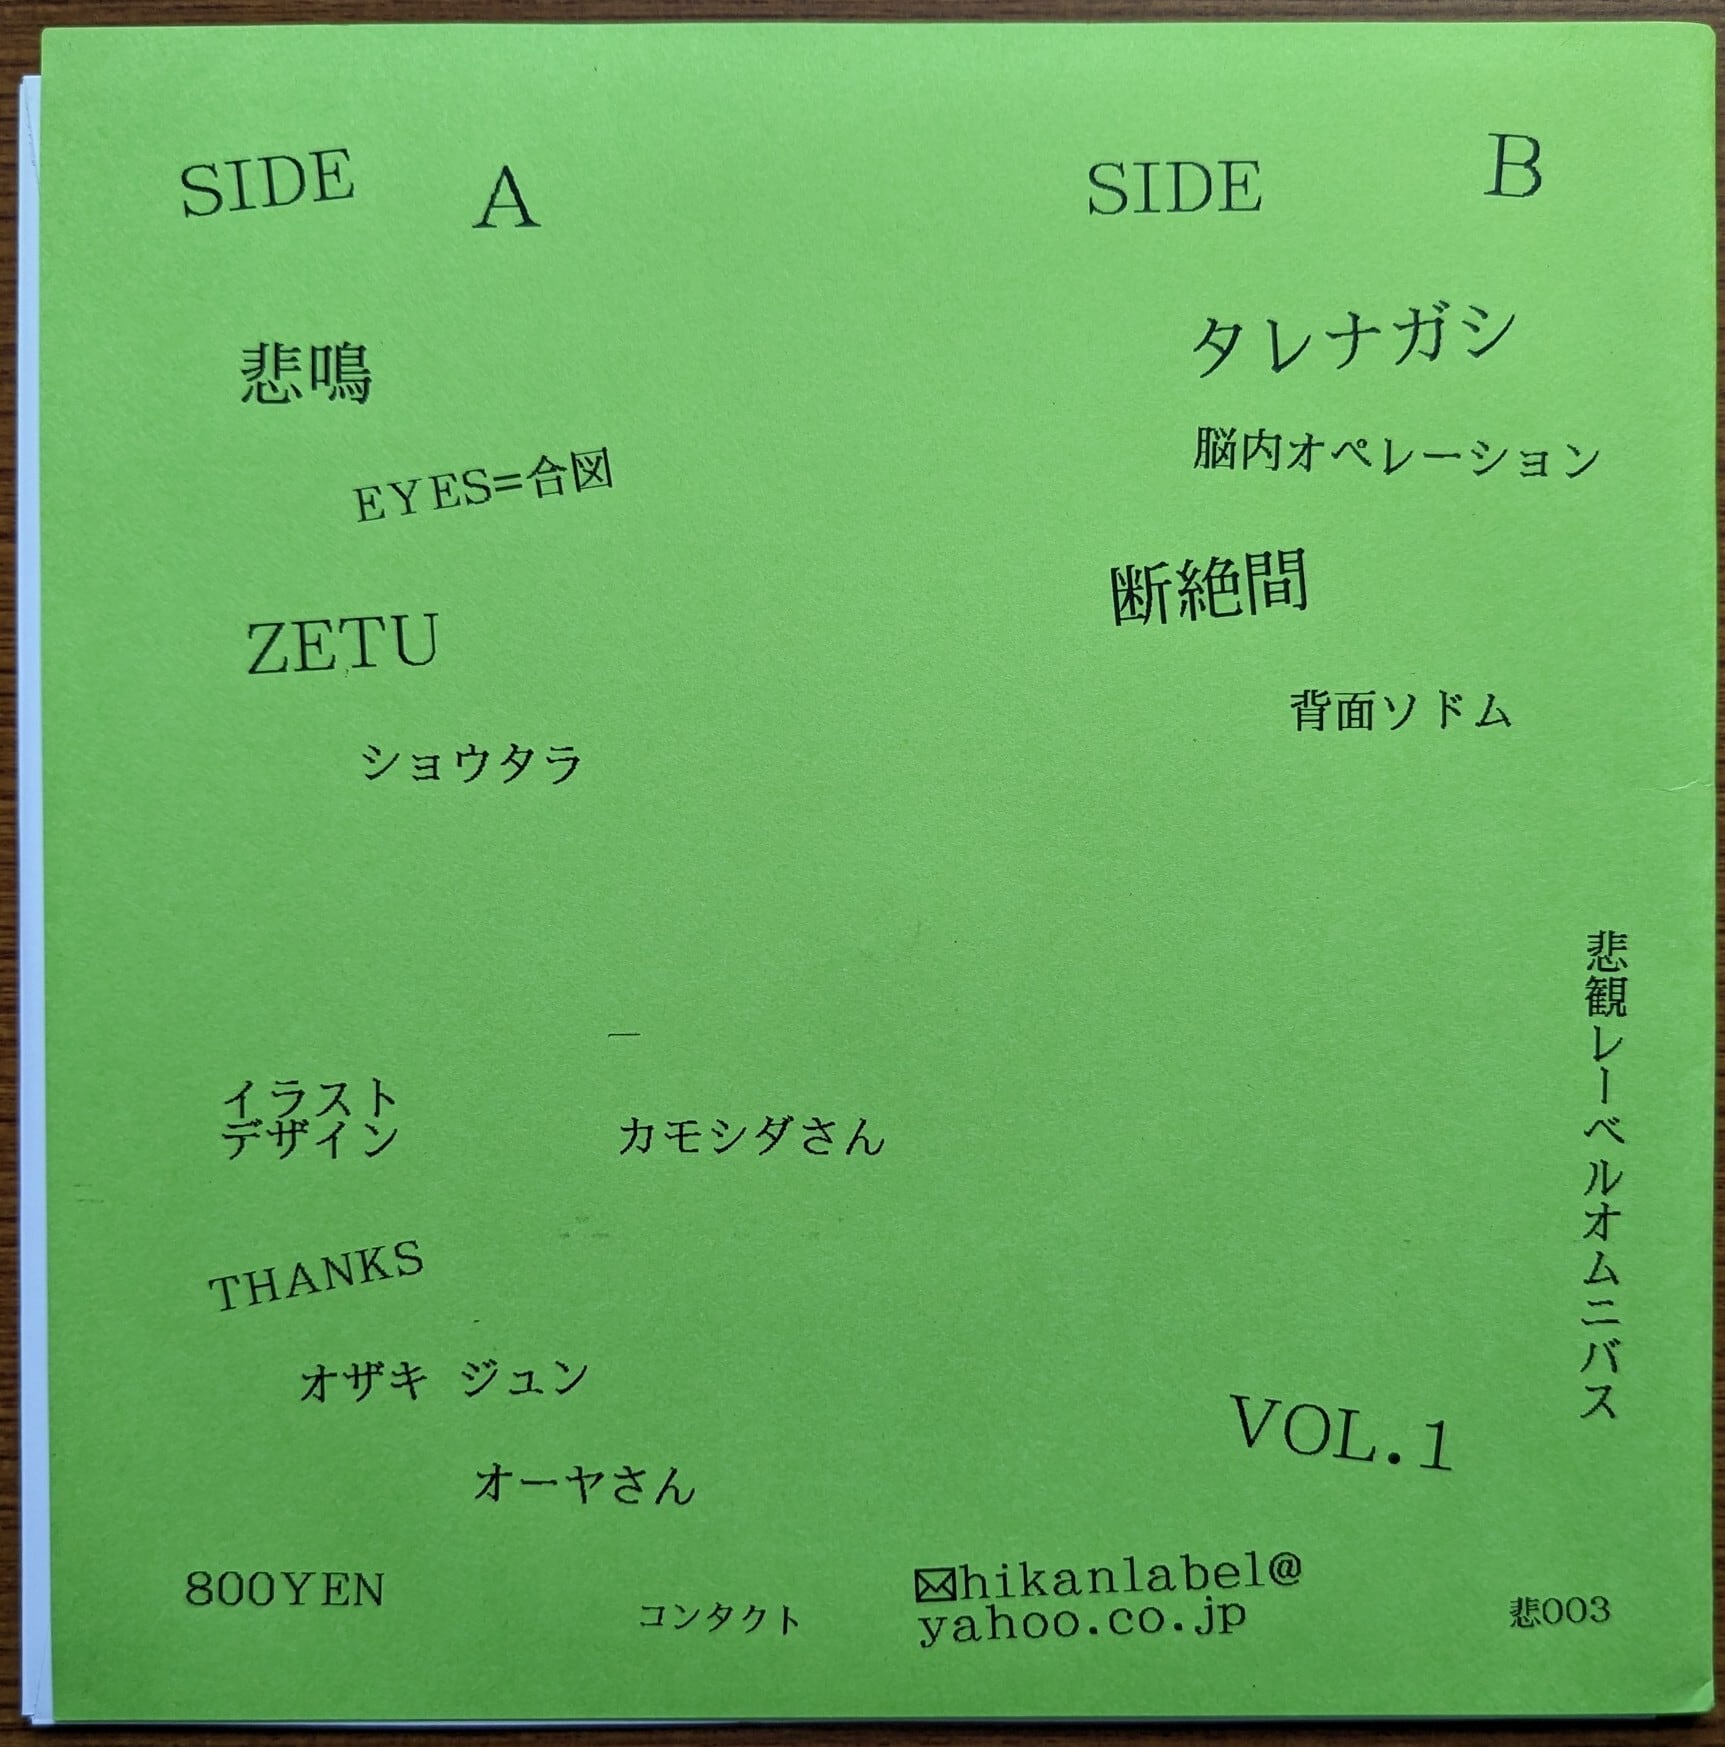 SIDE A
悲鳴
EYES=合図
ZETU
ショウタラ
SIDE B
タレナガシ
脳内オペレーション
断絶間
背面ソドム
イラスト
デザイン
カモシダさん
THANKS
オザキ ジュン
オーヤさん
悲観レーベルオムニバス
VOL.1
800YEN
コンタクト
✉hikanlabel@
yahoo.co.jp
悲003